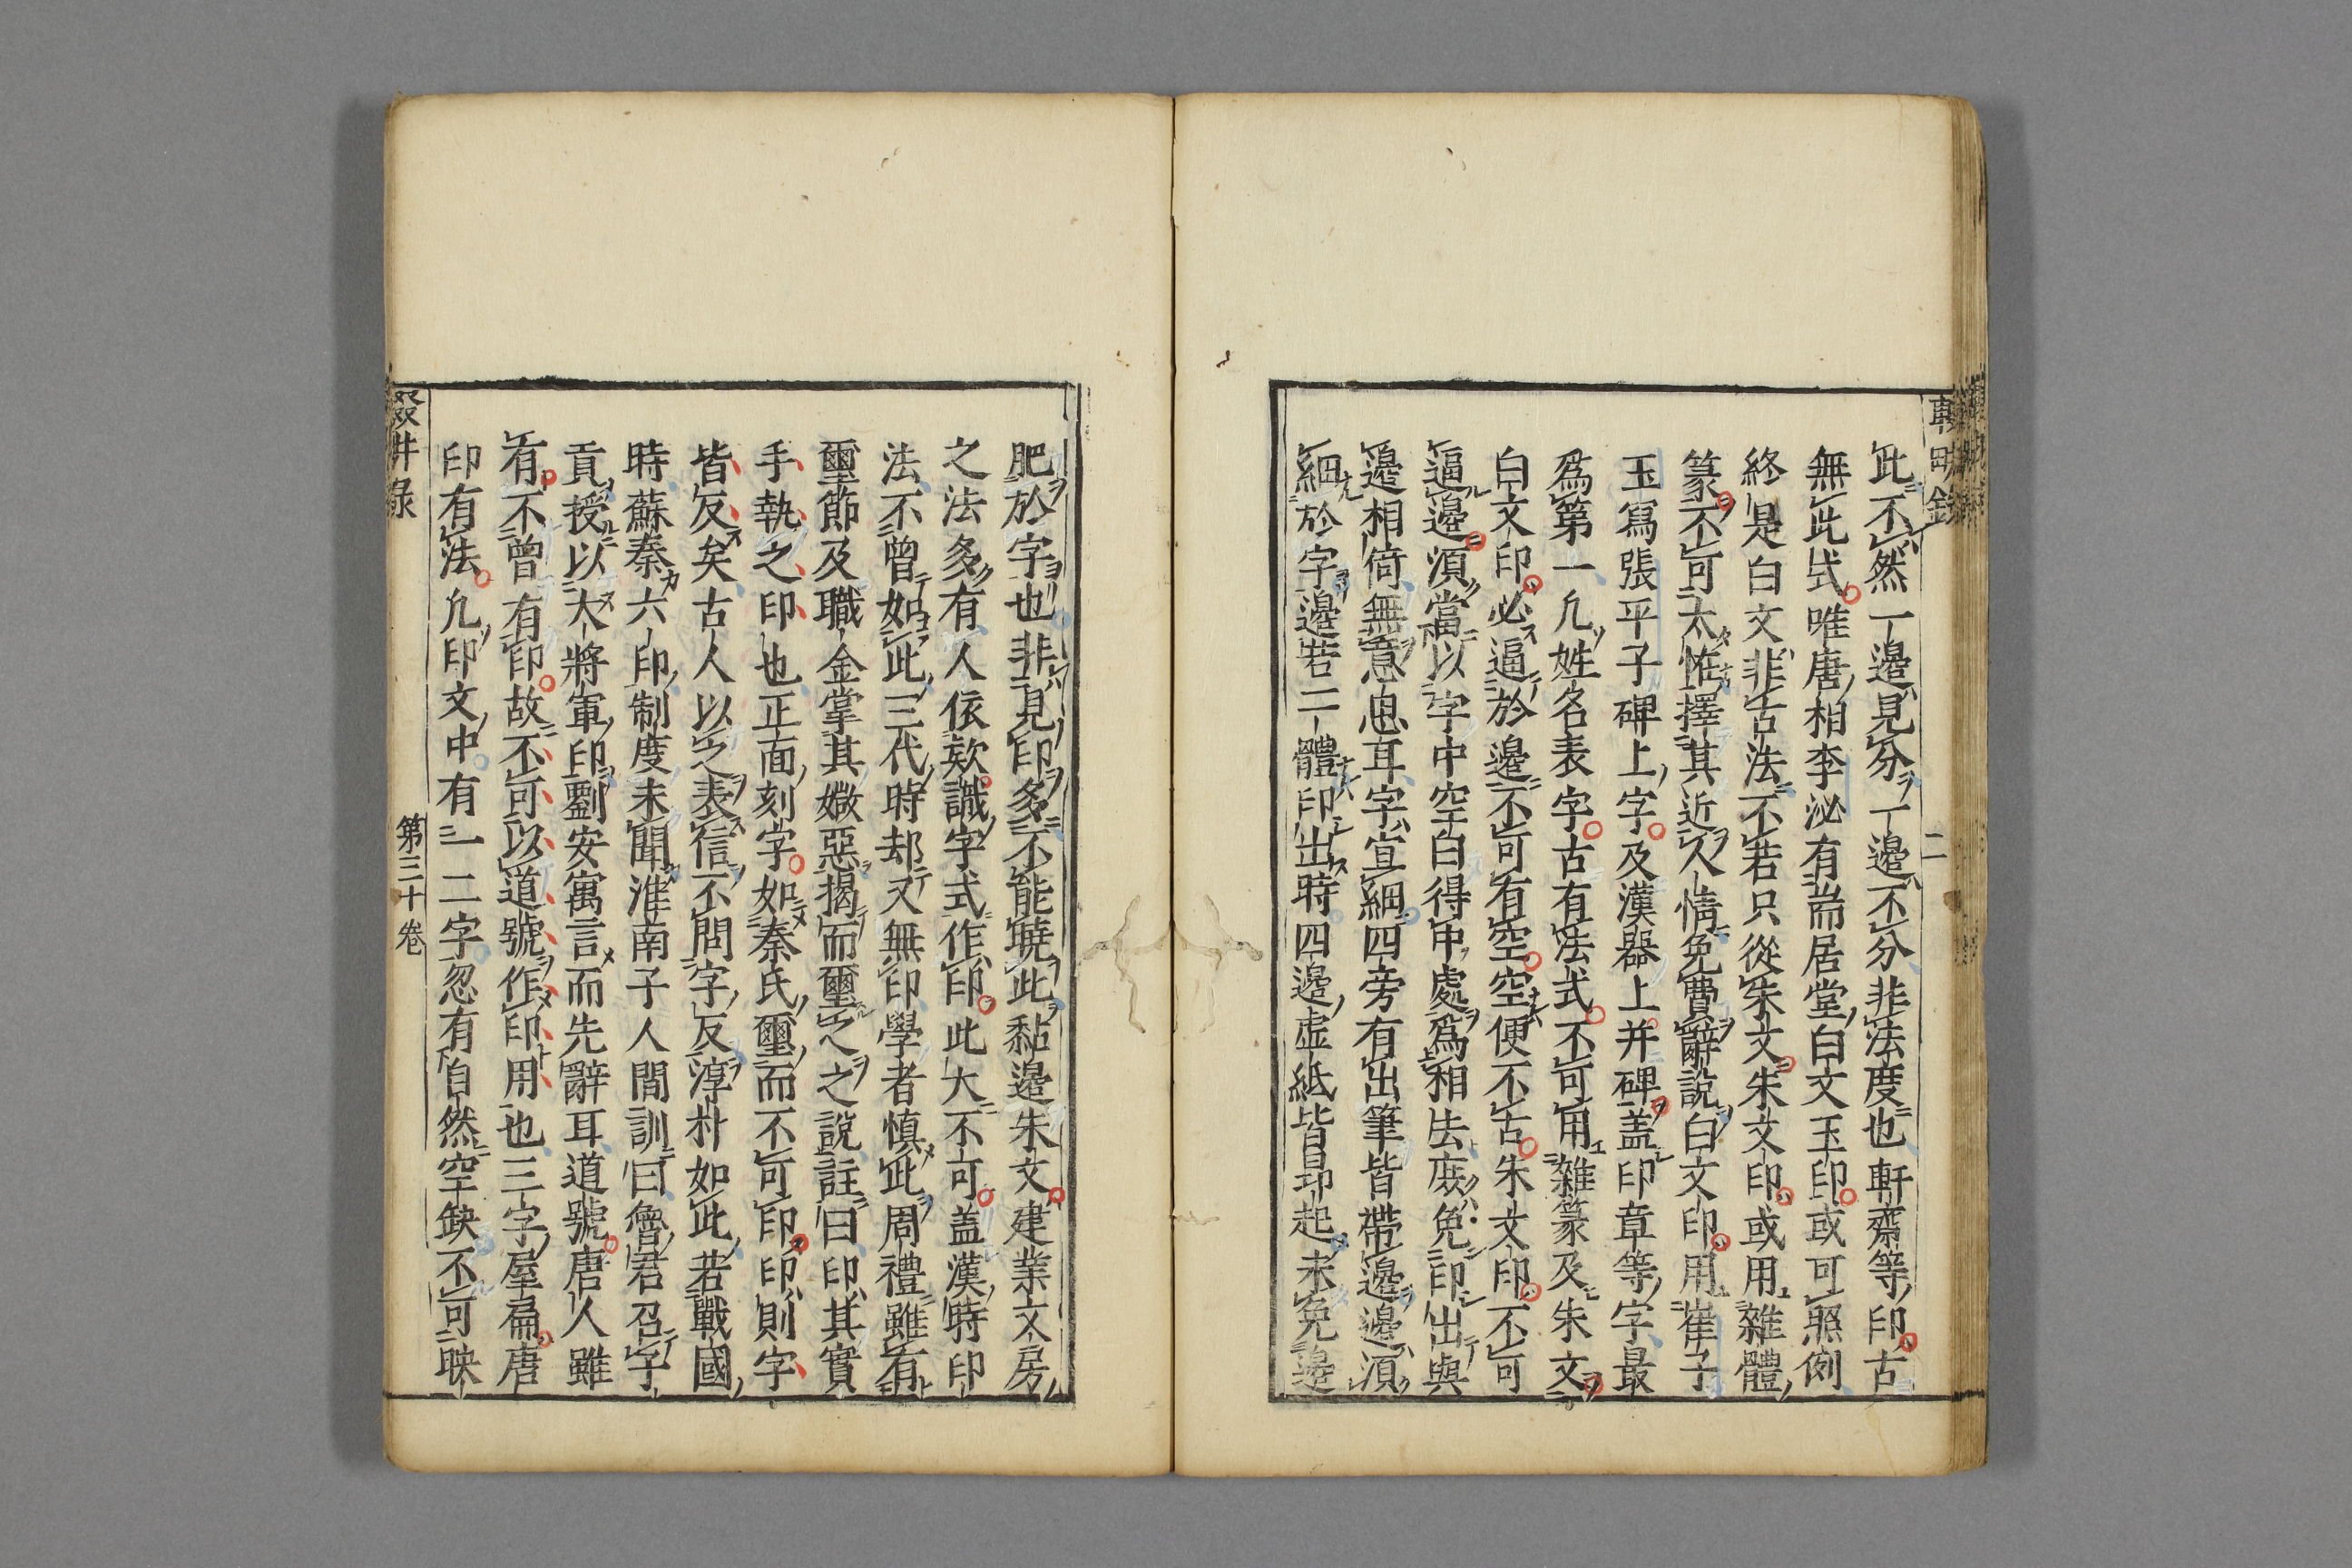 此不然一邉見分一邉不分非法度也軒齋等印古
無此式唯唐相李泌有耑居堂白文玉印或可照例
終是白文非古法不若只從朱文朱文印或用雜體
篆不可太怪擇其近人情免費辭說白文印用崔子
玉寫張平子碑上字及漢器上并碑盖印章等字最
爲第一凡姓名表字古有法式不可用雜篆及朱文
白文印必逼於邉不可有空空便不古朱文印不可
逼邉湏當以字中空白得中處爲相去庻免印出與
邉相倚無意思耳字宜細四旁有出筆皆帶邉邉湏
細於字邉若二體印出時四邉虛紙皆昻起未免邉
二
肥於字也非見印多不能曉此黏邉朱文建業文房
之法多有人依欵識字式作印此大不可盖漢時印
法不曾如此三代時却又無印學者慎此周禮雖有
璽節及職金掌其媺惡揭而璽之之說註曰印其實
手執之印也正面刻字如秦氏璽而不可印印則字
皆反矣古人以之表信不問字反淳朴如此若戰國
時蘇秦六印制度未聞淮南子人間訓曰魯君召子
貢授以大將軍印劉安寓言而先辭耳道號唐人雖
有不曾有印故不可以道號作印用也三字屋扁唐
印有法凡印文中有一二字忽有自然空缺不可映
輟耕録
第三十卷